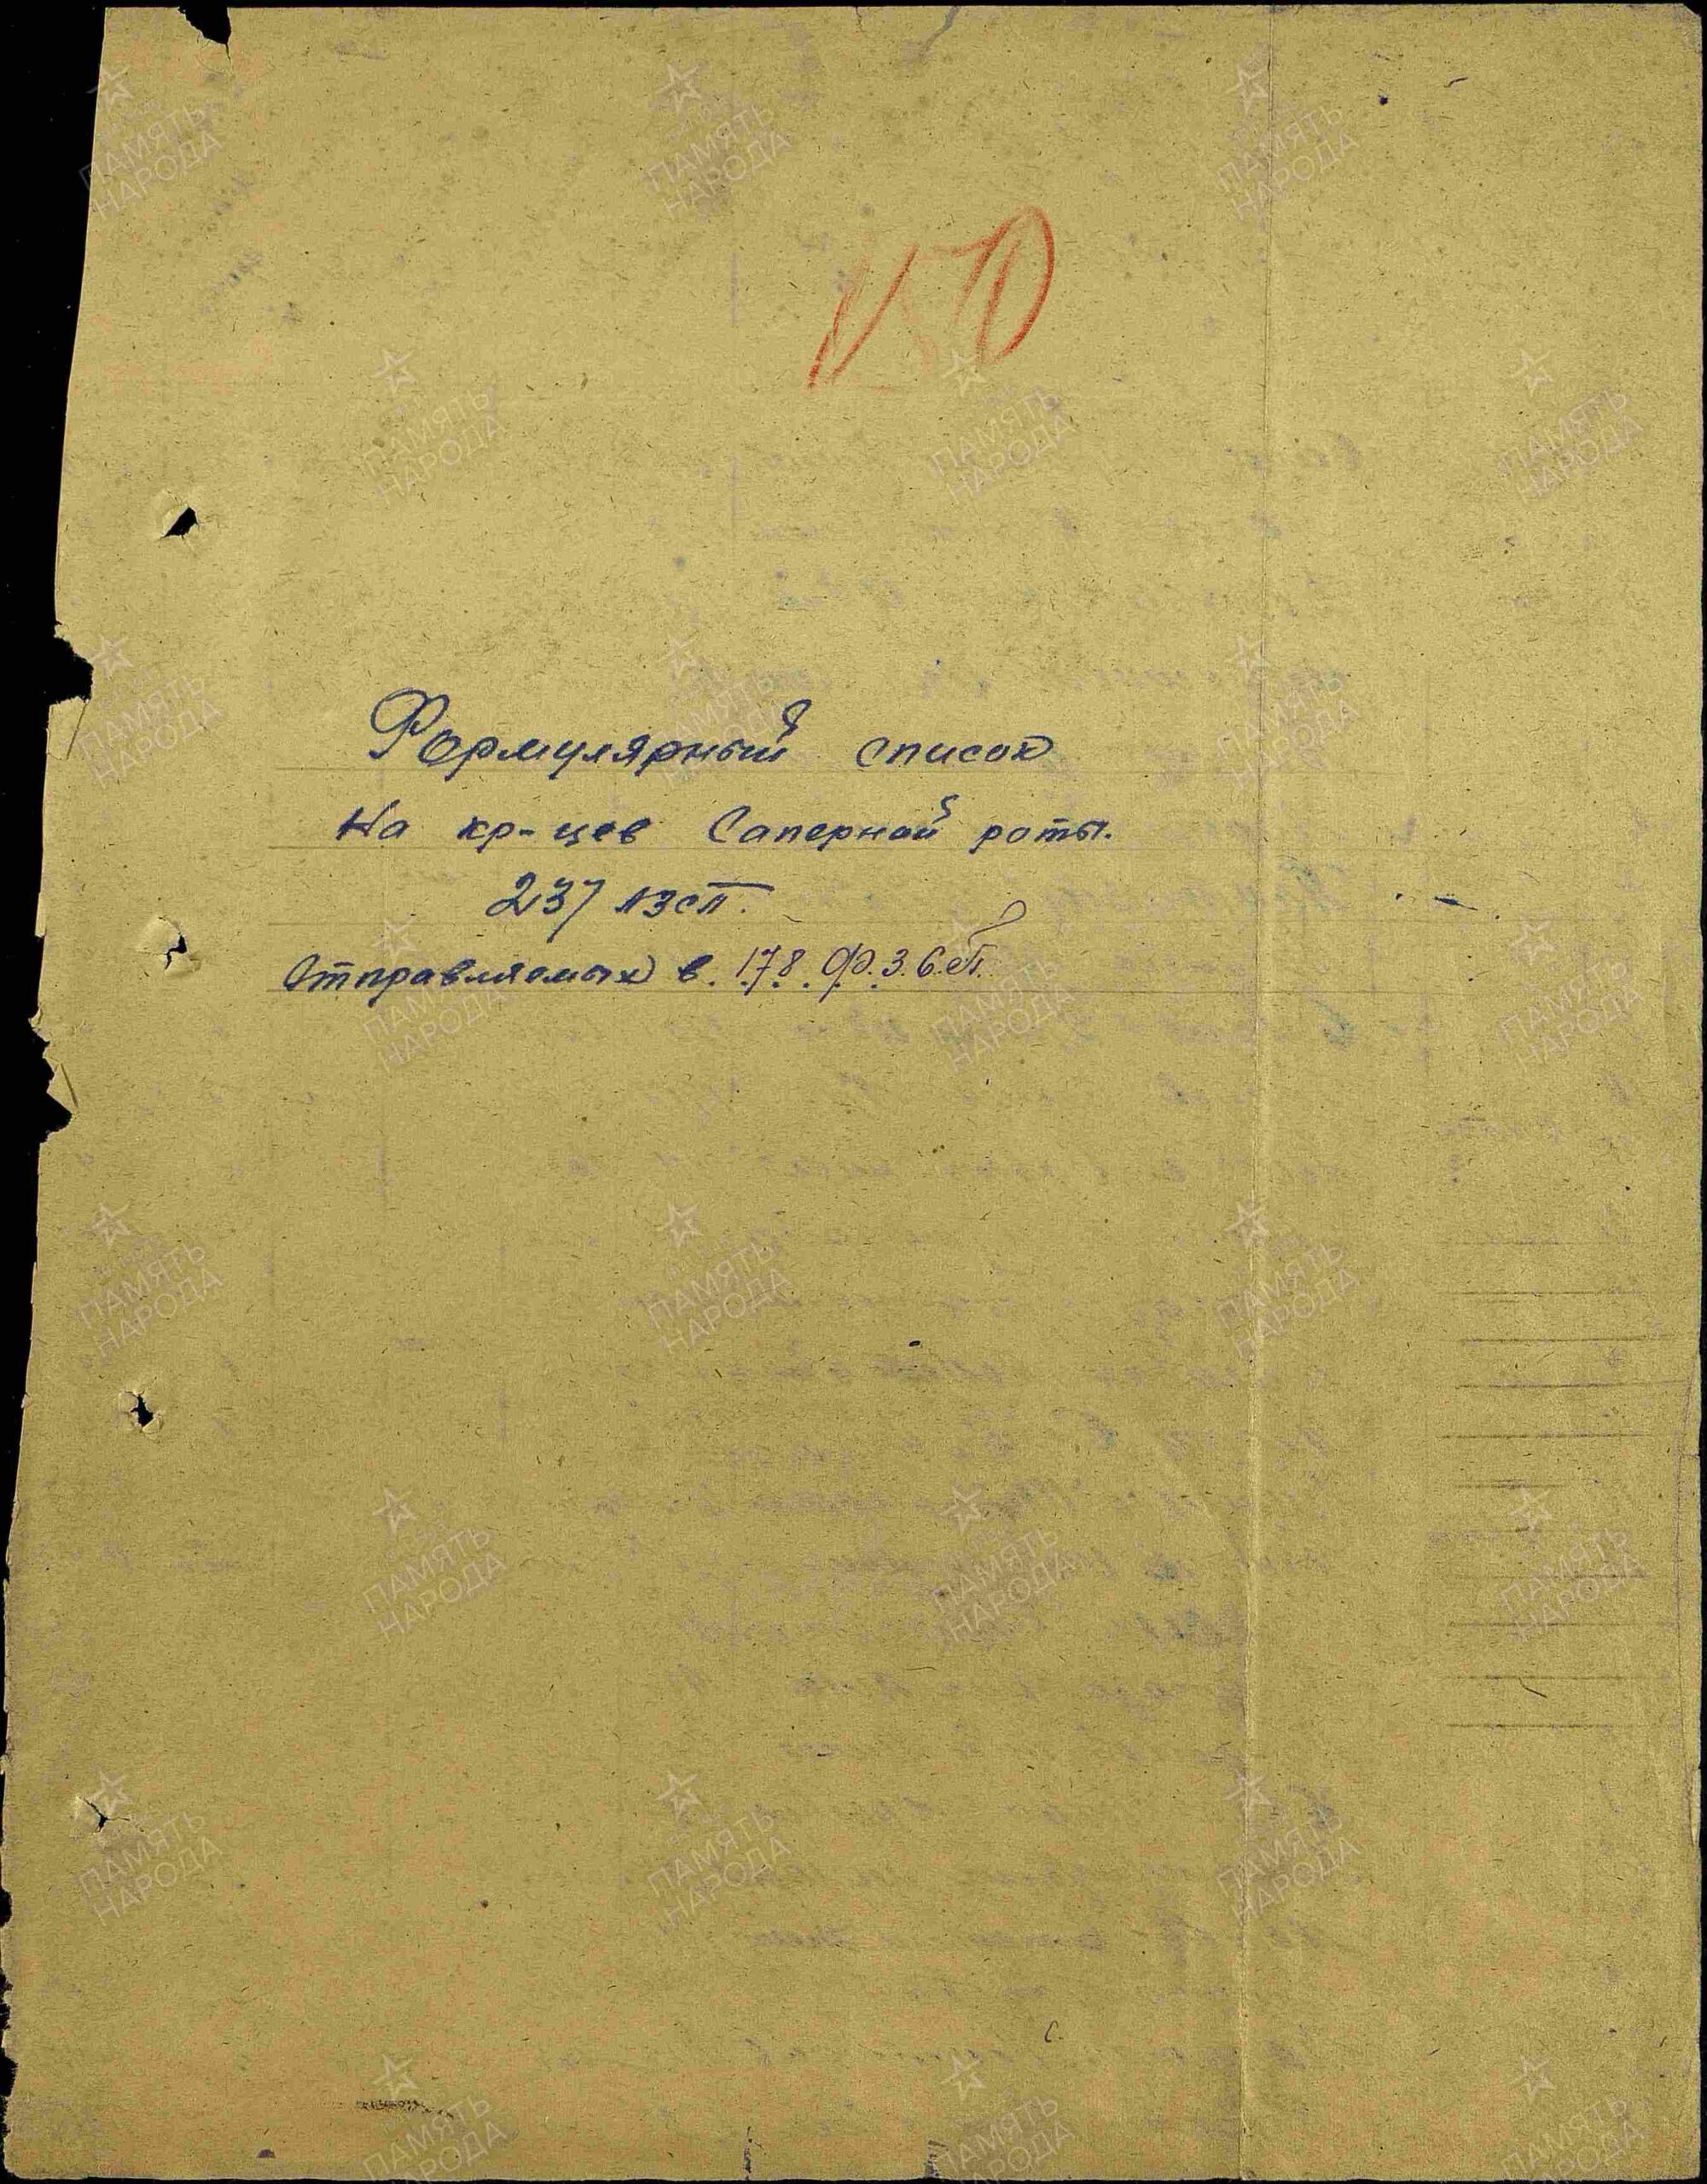 Формулярный список
На кр-цев Саперной роты.
237 АЗСП.
Отправляемых в. 178. Ф.З.С.П.
ПАМЯТЬ НАРОДА